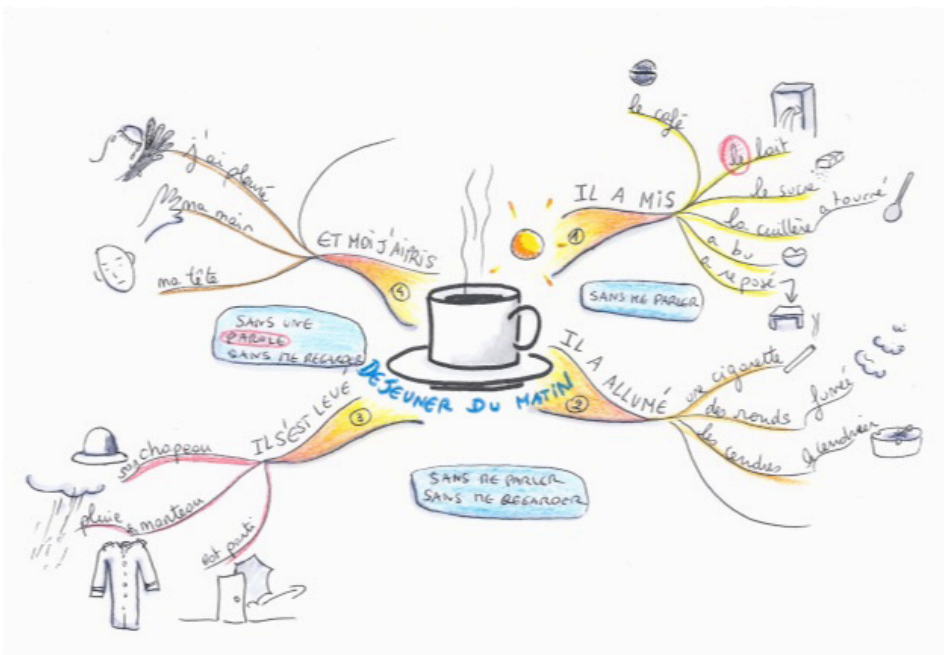 DEJEUNER DU MATIN
1
IL A MIS
le café
le lait
le sucre
la cuillère
a tourné
a bu
a reposé
SANS ME PARLER
2
IL A ALLUMÉ
une cigarette
des ronds
fumée
les cendres
le cendrier
SANS ME PARLER
SANS ME REGARDER
3
IL S'EST LEVÉ
son chapeau
manteau
pluie
est parti
SANS UNE
PAROLE
SANS ME REGARDER
4
ET MOI J'AI PRIS
ma tête
ma main
j'ai pleuré